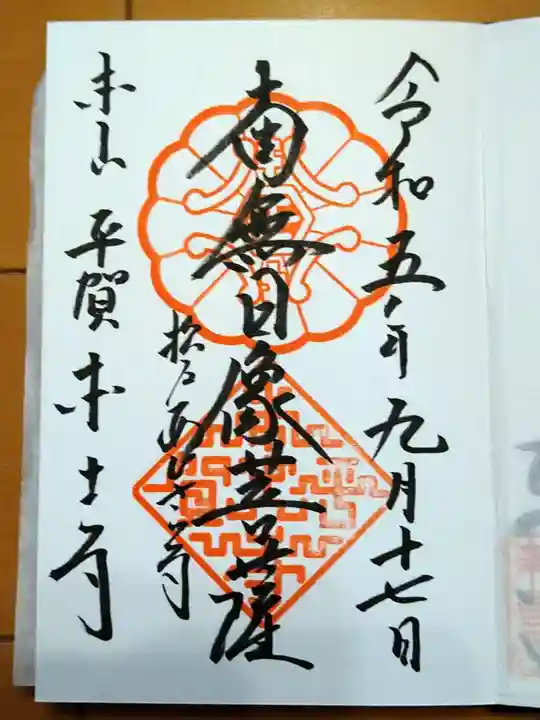 令和五年九月十七日
南無日像菩薩
松戸あじさい寺
本山 平賀 本土寺